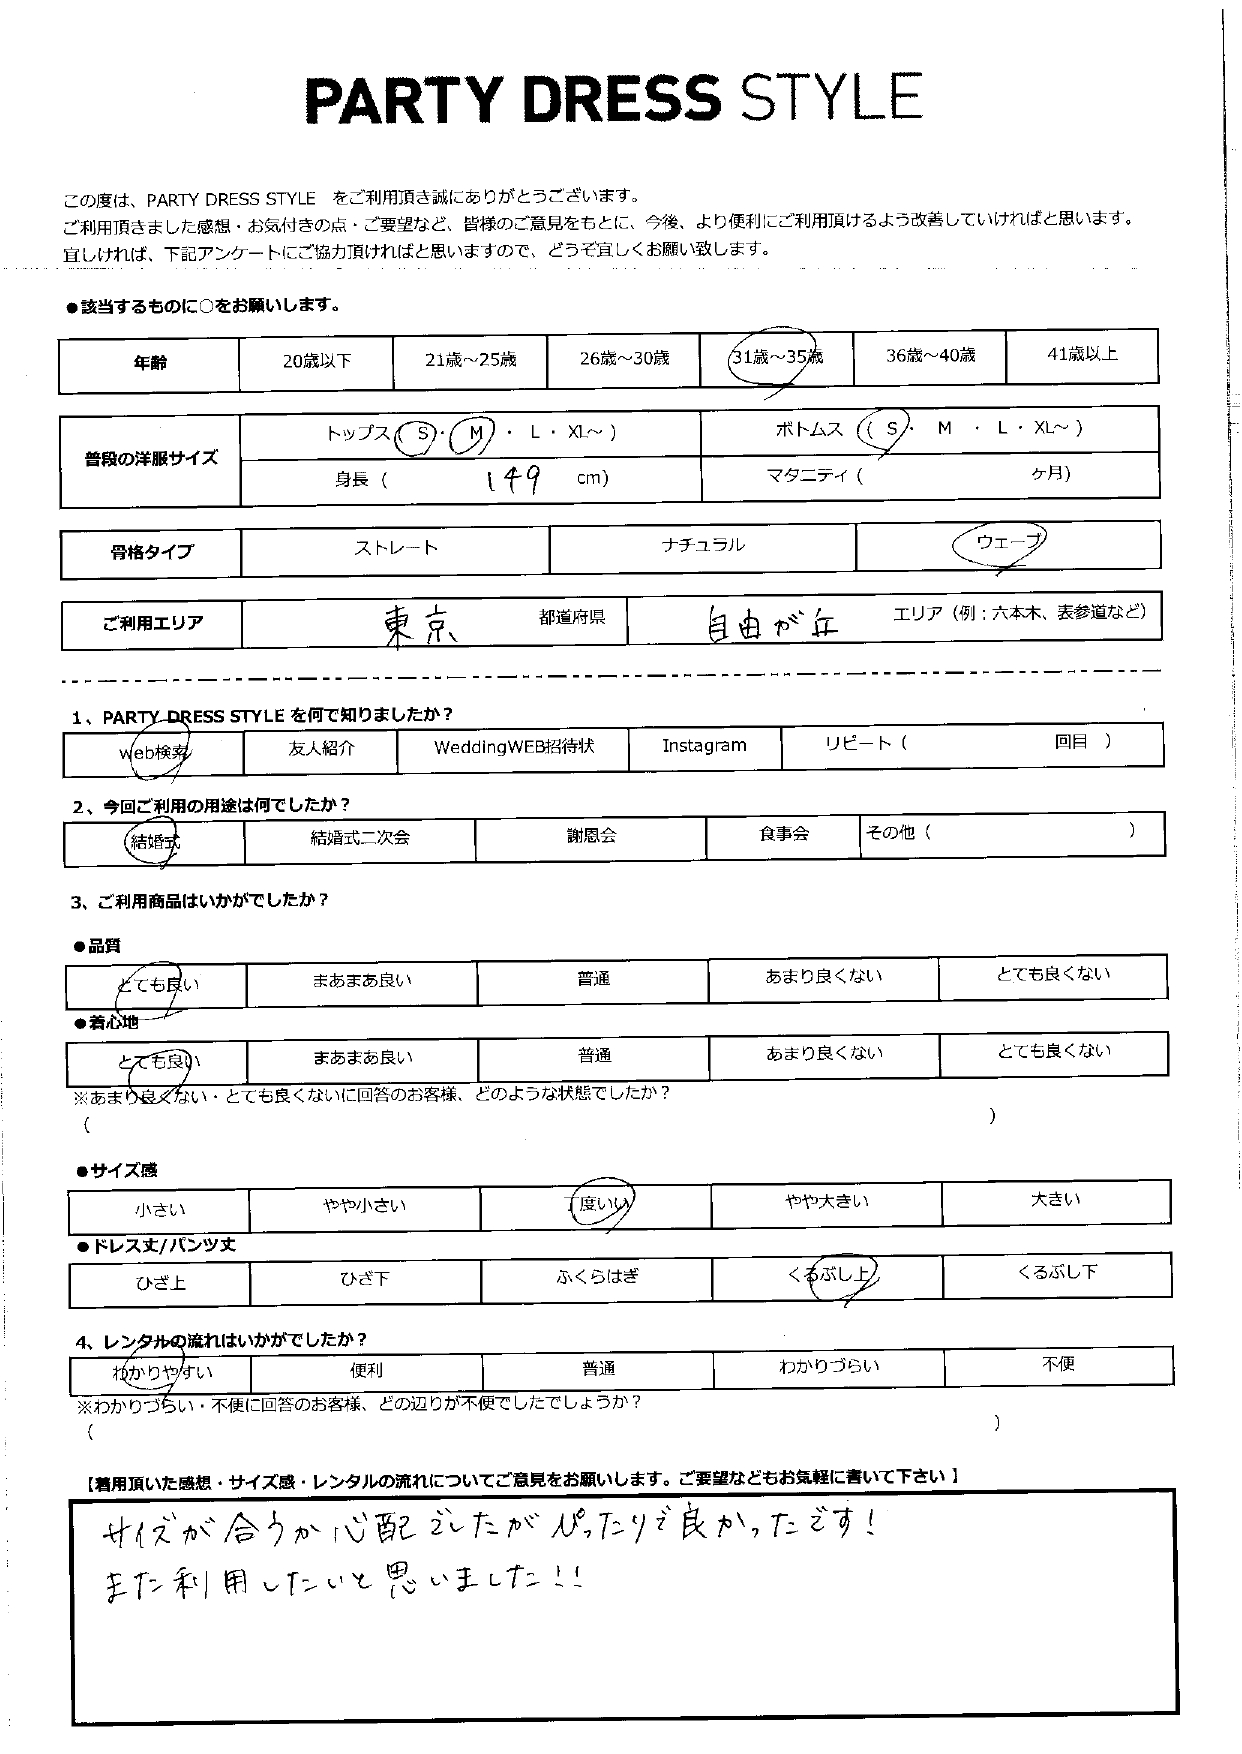 PARTY DRESS STYLE
この度は、PARTY DRESS STYLE をご利用頂き誠にありがとうございます。
ご利用頂きました感想・お気付きの点・ご要望など、皆様のご意見をもとに、今後、より便利にご利用頂けるよう改善していければと思います。
宜しければ、下記アンケートにご協力頂ければと思いますので、どうぞ宜しくお願い致します。
●該当するものに○をお願いします。
年齢 20歳以下 21歳～25歳 26歳～30歳 31歳～35歳 36歳～40歳 41歳以上
普段の洋服サイズ トップス ( S ・ M ・ L ・ XL～ ) ボトムス ( S ・ M ・ L ・ XL～ )
身長 ( 149 cm) マタニティ ( ヶ月)
骨格タイプ ストレート ナチュラル ウェーブ
ご利用エリア 東京 都道府県 自由が丘 エリア（例：六本木、表参道など）
1、PARTY DRESS STYLE を何で知りましたか？
Web検索 友人紹介 WeddingWEB招待状 Instagram リピート ( 回目 )
2、今回ご利用の用途は何でしたか？
結婚式 結婚式二次会 謝恩会 食事会 その他 ( )
3、ご利用商品はいかがでしたか？
●品質
とても良い まあまあ良い 普通 あまり良くない とても良くない
●着心地
とても良い まあまあ良い 普通 あまり良くない とても良くない
※あまり良くない・とても良くないに回答のお客様、どのような状態でしたか？
( )
●サイズ感
小さい やや小さい 丁度いい やや大きい 大きい
●ドレス丈/パンツ丈
ひざ上 ひざ下 ふくらはぎ くるぶし上 くるぶし下
4、レンタルの流れはいかがでしたか？
わかりやすい 便利 普通 わかりづらい 不便
※わかりづらい・不便に回答のお客様、どの辺りが不便でしたでしょうか？
( )
【着用頂いた感想・サイズ感・レンタルの流れについてご意見をお願いします。ご要望などもお気軽に書いて下さい】
サイズが合うか心配でしたがぴったりで良かったです！
また利用したいと思いました!!